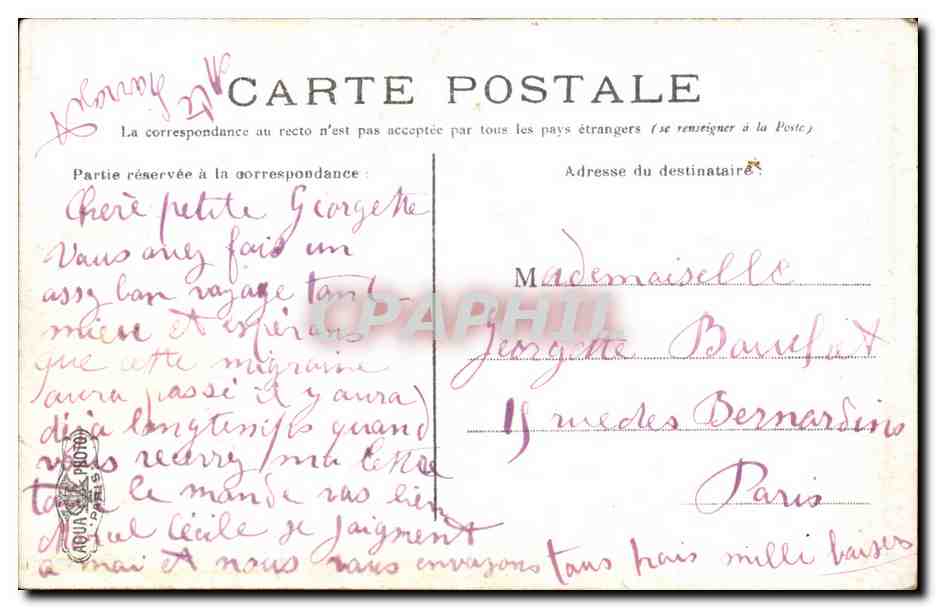 CARTE POSTALE
La correspondance au recto n'est pas acceptée par tous les pays étrangers (se renseigner à la Poste)
Partie réservée à la correspondance :
Adresse du destinataire :
Cherè petite Georgette
Vous avez fais un
assz bon voyage tant
mieu et espérons
que cette migraine
aura passé il y aura
dijà longtemps quand
vous recevrez ma lettre
tout le monde vas bien
Marcel Cécile se joignent
a moi et nous vous envoyons tous trois milli baisers
Mademoiselle
Georgette
15 rue des Bernardins
Paris
AQUA PHOTO
PARIS
CPAPHIL